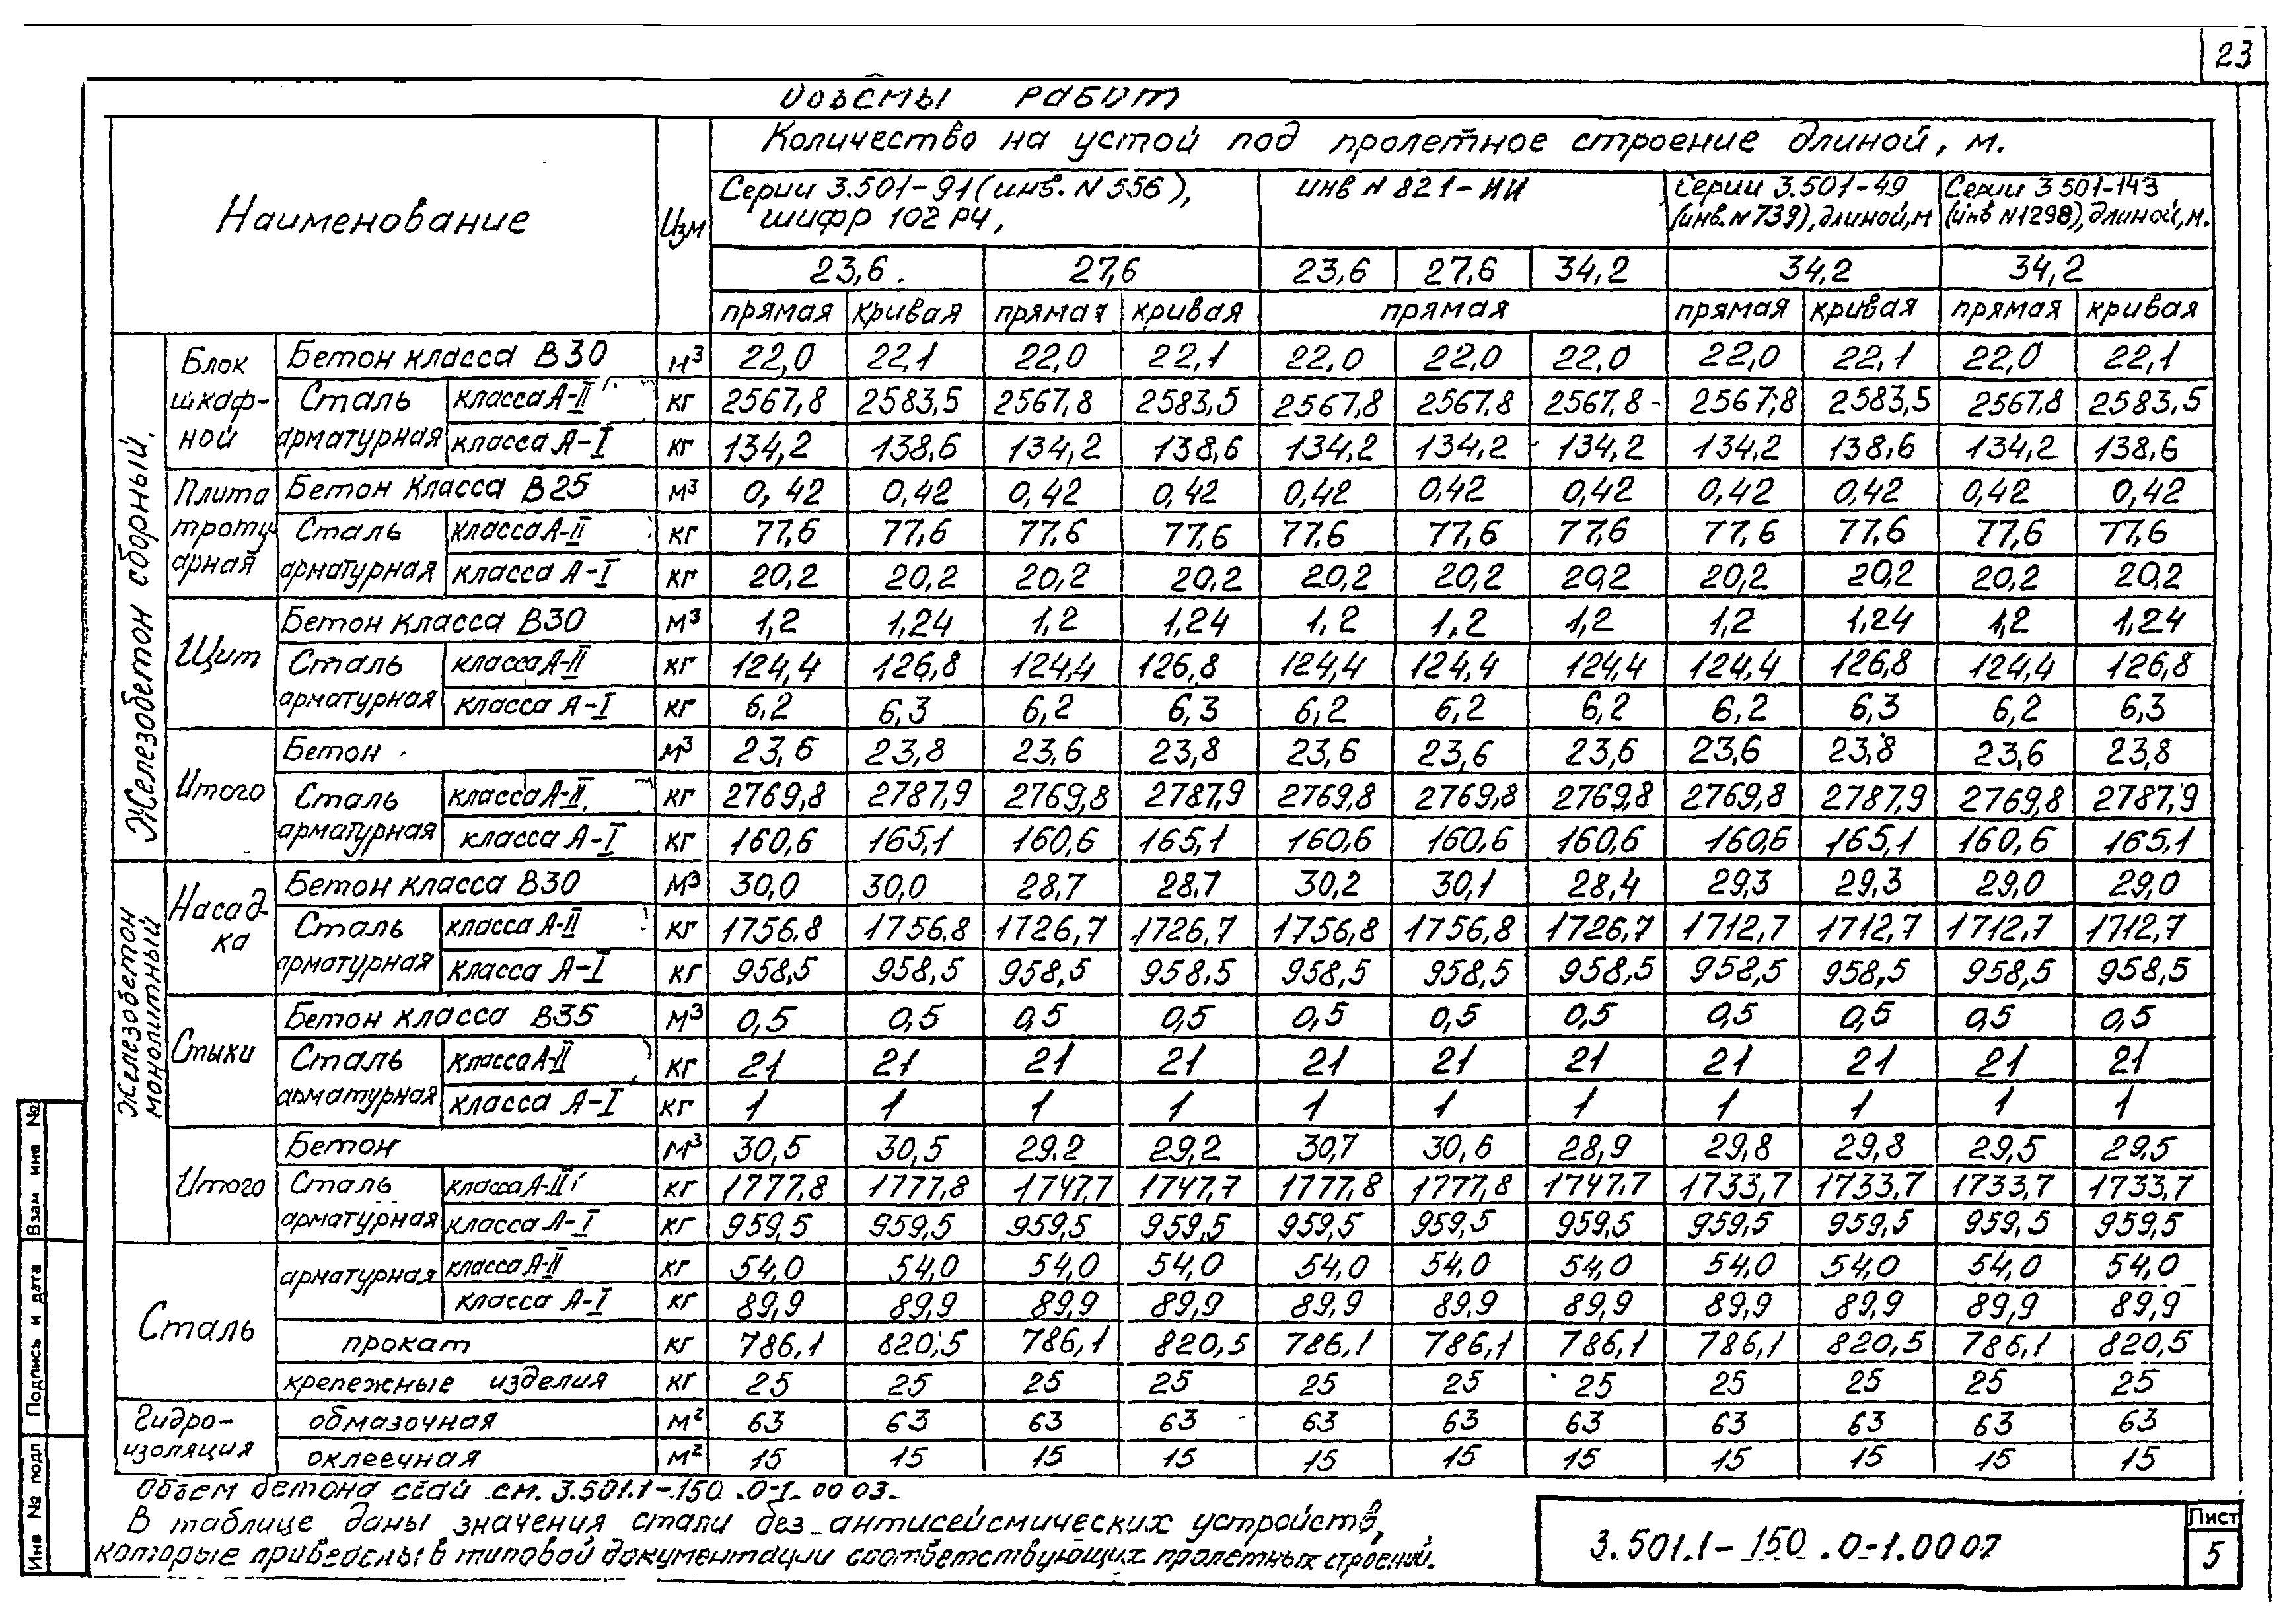 23
Объемы работ
Наименование Изм Количество на устой под пролетное строение длиной, м.
Серии 3.501-91 (инв. N 556), шифр 102 РЧ, инв N 821-ИИ Серии 3.501-49 (инв. N 739), длиной, м Серии 3 501-143 (инв N1298), длиной, м.
23,6. 27,6 23,6 27,6 34,2 34,2 34,2
прямая кривая прямая кривая прямая прямая кривая прямая кривая
Железобетон сборный.
Блок шкафной
Бетон класса В30 м³ 22,0 22,1 22,0 22,1 22,0 22,0 22,0 22,0 22,1 22,0 22,1
Сталь арматурная
класса А-II кг 2567,8 2583,5 2567,8 2583,5 2567,8 2567,8 2567,8 2567,8 2583,5 2567,8 2583,5
класса А-I кг 134,2 138,6 134,2 138,6 134,2 134,2 134,2 134,2 138,6 134,2 138,6
Плита тротуарная
Бетон класса В25 м³ 0,42 0,42 0,42 0,42 0,42 0,42 0,42 0,42 0,42 0,42 0,42
Сталь арматурная
класса А-II кг 77,6 77,6 77,6 77,6 77,6 77,6 77,6 77,6 77,6 77,6 77,6
класса А-I кг 20,2 20,2 20,2 20,2 20,2 20,2 20,2 20,2 20,2 20,2 20,2
Щит
Бетон класса В30 м³ 1,2 1,24 1,2 1,24 1,2 1,2 1,2 1,2 1,24 1,2 1,24
Сталь арматурная
класса А-II кг 124,4 126,8 124,4 126,8 124,4 124,4 124,4 124,4 126,8 124,4 126,8
класса А-I кг 6,2 6,3 6,2 6,3 6,2 6,2 6,2 6,2 6,3 6,2 6,3
Итого
Бетон м³ 23,6 23,8 23,6 23,8 23,6 23,6 23,6 23,6 23,8 23,6 23,8
Сталь арматурная
класса А-II кг 2769,8 2787,9 2769,8 2787,9 2769,8 2769,8 2769,8 2769,8 2787,9 2769,8 2787,9
класса А-I кг 160,6 165,1 160,6 165,1 160,6 160,6 160,6 160,6 165,1 160,6 165,1
Железобетон монолитный
Насадка
Бетон класса В30 м³ 30,0 30,0 28,7 28,7 30,2 30,1 28,4 29,3 29,3 29,0 29,0
Сталь арматурная
класса А-II кг 1756,8 1756,8 1726,7 1726,7 1756,8 1756,8 1726,7 1712,7 1712,7 1712,7 1712,7
класса А-I кг 958,5 958,5 958,5 958,5 958,5 958,5 958,5 958,5 958,5 958,5 958,5
Стыки
Бетон класса В35 м³ 0,5 0,5 0,5 0,5 0,5 0,5 0,5 0,5 0,5 0,5 0,5
Сталь арматурная
класса А-II кг 21 21 21 21 21 21 21 21 21 21 21
класса А-I кг 1 1 1 1 1 1 1 1 1 1 1
Итого
Бетон м³ 30,5 30,5 29,2 29,2 30,7 30,6 28,9 29,8 29,8 29,5 29,5
Сталь арматурная
класса А-II кг 1777,8 1777,8 1747,7 1747,7 1777,8 1777,8 1747,7 1733,7 1733,7 1733,7 1733,7
класса А-I кг 959,5 959,5 959,5 959,5 959,5 959,5 959,5 959,5 959,5 959,5 959,5
Сталь
арматурная
класса А-II кг 54,0 54,0 54,0 54,0 54,0 54,0 54,0 54,0 54,0 54,0 54,0
класса А-I кг 89,9 89,9 89,9 89,9 89,9 89,9 89,9 89,9 89,9 89,9 89,9
прокат кг 786,1 820,5 786,1 820,5 786,1 786,1 786,1 786,1 820,5 786,1 820,5
крепежные изделия кг 25 25 25 25 25 25 25 25 25 25 25
Гидроизоляция
обмазочная м² 63 63 63 63 63 63 63 63 63 63 63
оклеечная м² 15 15 15 15 15 15 15 15 15 15 15
Объем бетона свай см. 3.501.1-150 .0-1 00 03.
В таблице даны значения стали без антисейсмических устройств,
которые приведены в типовой документации соответствующих пролетных строений.
3.501.1-150 .0-1.00 07
Лист
5
Взам инв №
Подпись и дата
Инв № подл